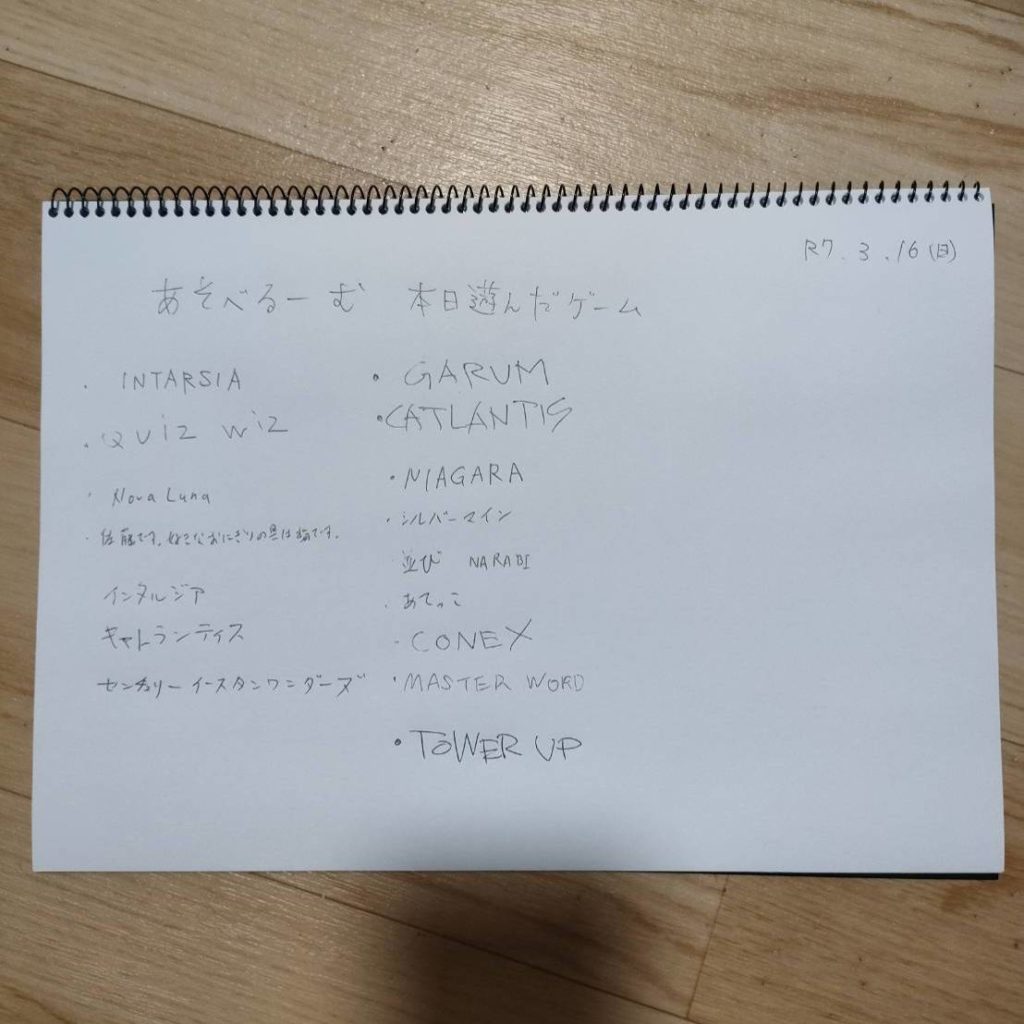 R7.3.16(日)
あそべるーむ 本日遊んだゲーム
・INTARSIA
・QUIZ WIZ
・Nova Luna
・佐藤です。好きなおにぎりの具は梅です。
インタルジア
キャトランティス
センチュリーイースタンワンダーズ
・GARUM
・CATLANTIS
・NIAGARA
・シルバーマイン
・並び NARABI
・あてっこ
・CONEX
・MASTER WORD
・TOWER UP